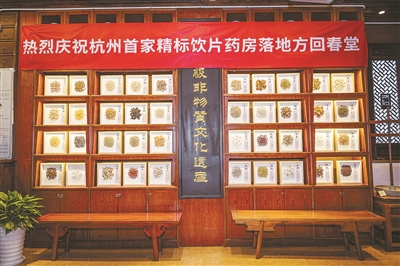 热烈庆祝杭州首家精标饮片药房落地方回春堂
级非物质文化遗产